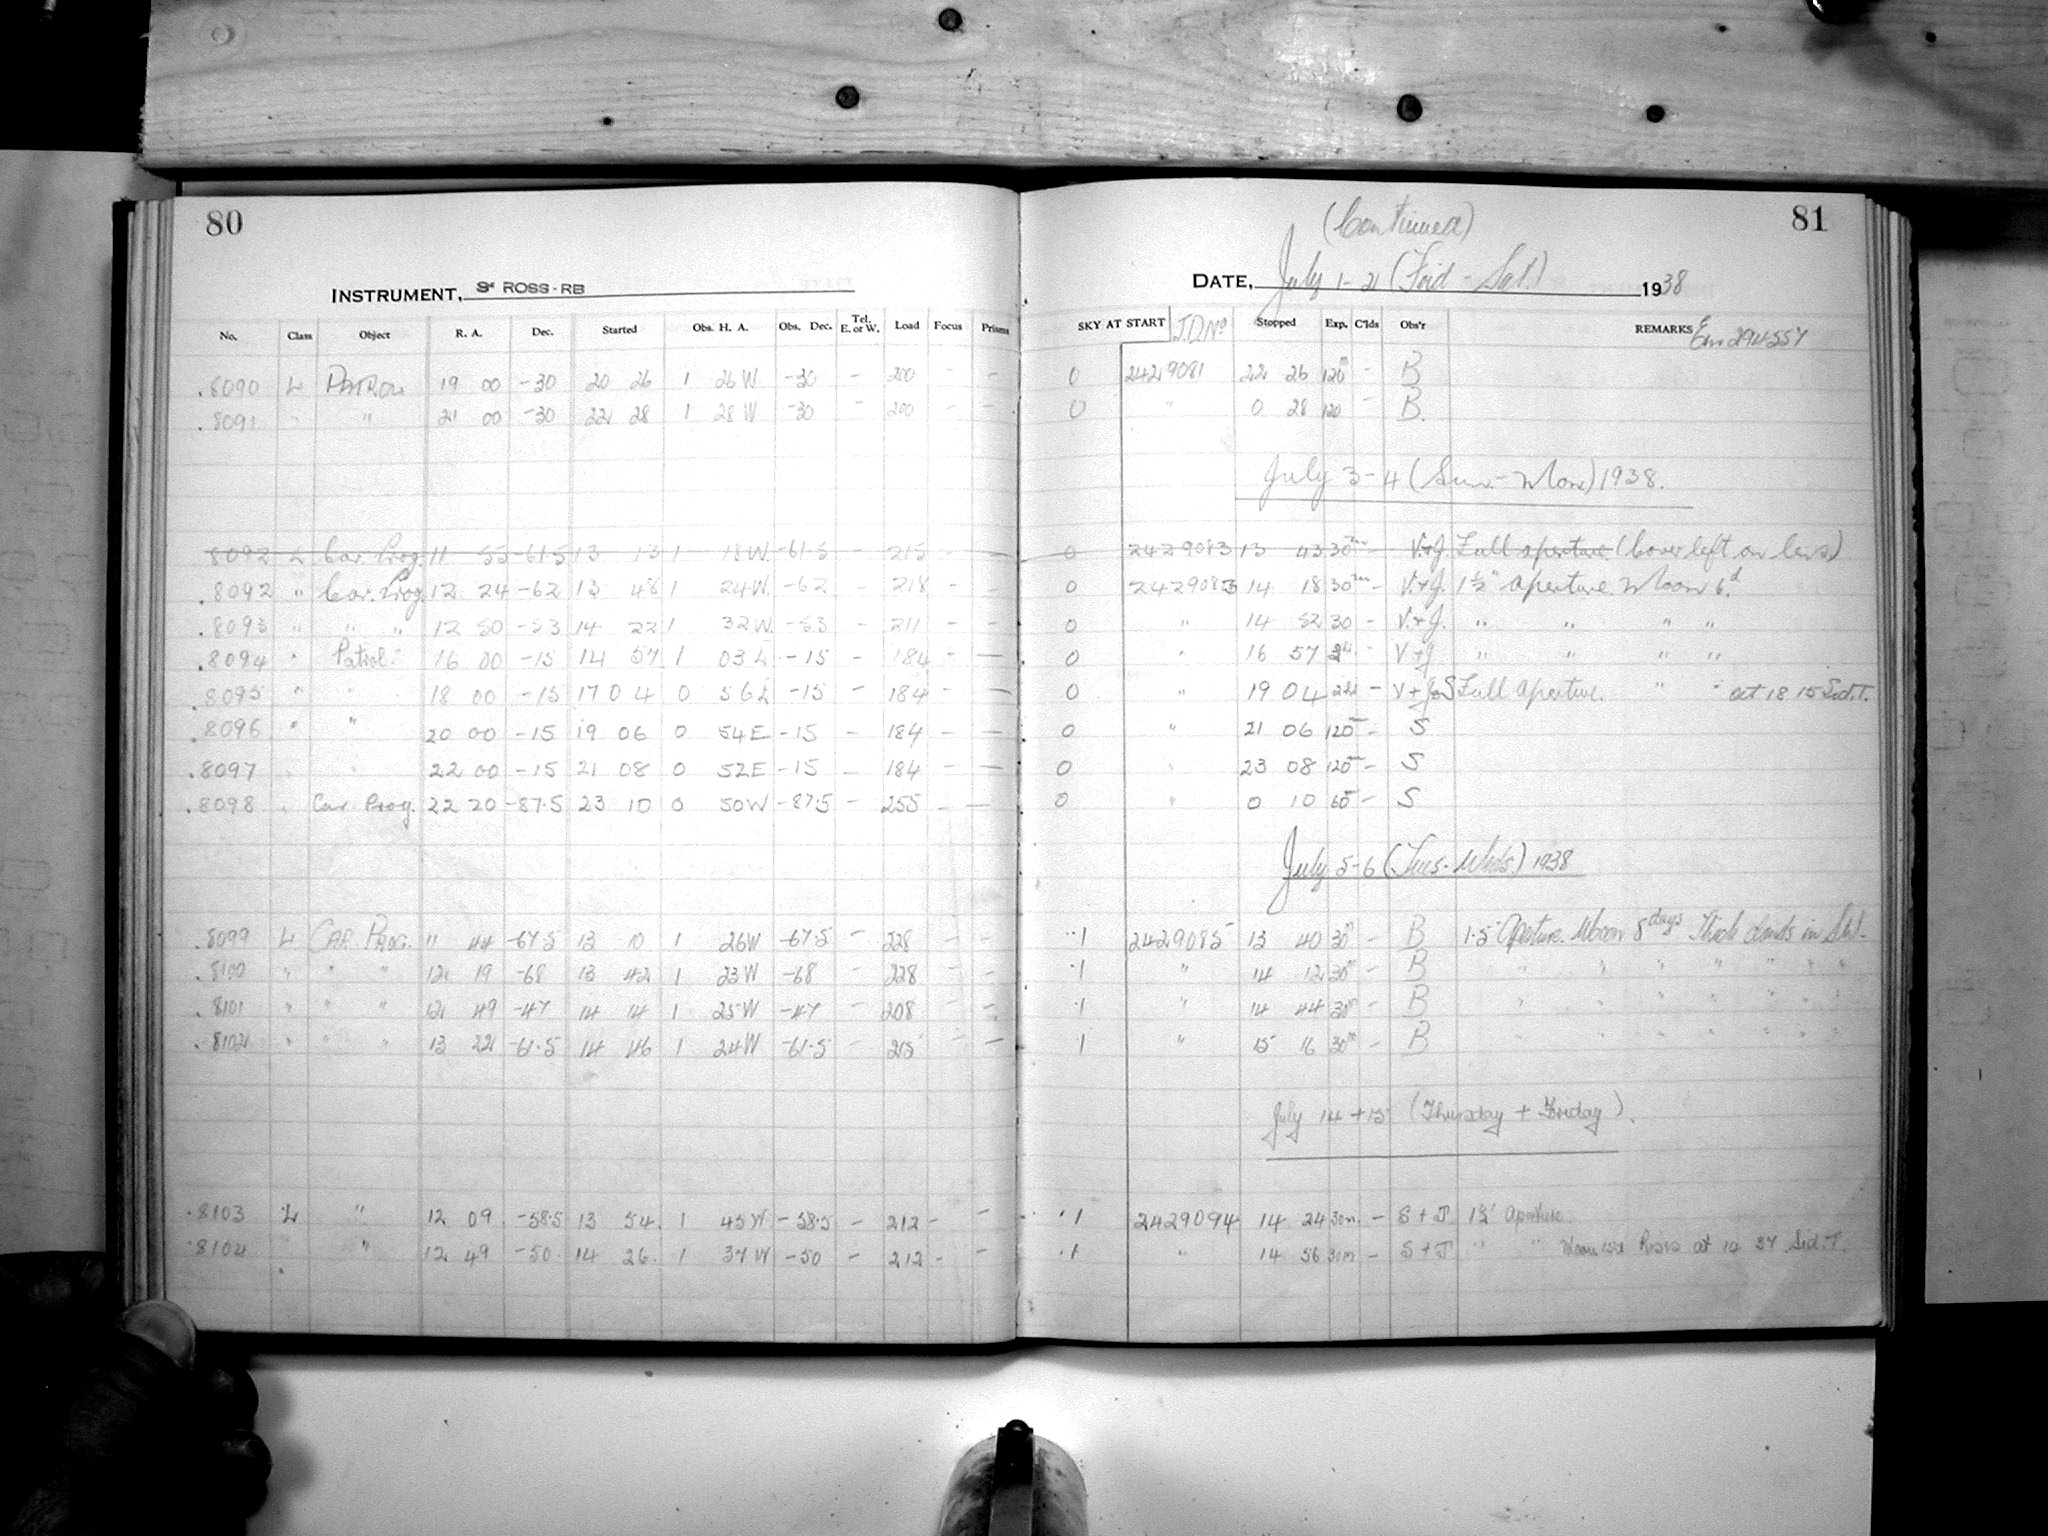 80
INSTRUMENT, 3" ROSS-RB
No. Class Object R. A. Dec. Started Obs. H. A. Obs. Dec. Tel. E. or W. Load Focus Prisms
.8090 L PATROL 19 00 -30 20 26 1 26W -30 - 200 - -
.8091 " " 21 00 -30 22 28 1 28W -30 - 200 - -
8092 L Car. Prog. 11 55 -61.5 13 13 1 18W. -61.5 - 215 - -
.8092 " Car. Prog. 12 24 -62 13 48 1 24W. -62 - 218 - -
.8093 " " " 12 50 -53 14 22 1 32W. -53 - 211 - -
.8094 " Patrol. 16 00 -15 14 57 1 03E -15 - 184 - -
.8095 " " 18 00 -15 17 04 0 56E -15 - 184 - -
.8096 " " 20 00 -15 19 06 0 54E -15 - 184 - -
.8097 " " 22 00 -15 21 08 0 52E -15 - 184 - -
.8098 " Car. Prog. 22 20 -87.5 23 10 0 50W -87.5 - 255 - -
.8099 L CAR. PROG. 11 44 -67.5 13 10 1 26W -67.5 - 228 - -
.8100 " " " 12 19 -68 13 42 1 23W -68 - 228 - -
.8101 " " " 12 49 -47 14 14 1 25W -47 - 208 - -
.8102 " " " 13 22 -61.5 14 46 1 24W -61.5 - 215 - -
.8103 L " 12 09 -58.5 13 54 1 45W -58.5 - 212 - -
.8104 " " 12 49 -50 14 26 1 37W -50 - 212 - -
81
(Continued)
DATE, July 1-2 (Frid - Sat.) 1938
SKY AT START J.D.No. Stopped Exp. C'lds Obs'r REMARKS
0 2429081 22 26 120m - B
0 " 0 28 120 - B.
July 3-4 (Sun.-Mon.) 1938.
0 2429083 13 43 30m - V.+J. Full aperture (Cover left on lens)
0 2429083 14 18 30m - V.+J. 1½" aperture. Moon 6d.
0 " 14 52 30 - V.+J. " " " "
0 " 16 57 2h - V+J " " " "
0 " 19 04 - V+J+S Full aperture. " " at 18 15 Sid.T.
0 " 21 06 120m - S
0 " 23 08 120m - S
0 " 0 10 60m - S
July 5-6 (Tues.-Weds.) 1938
1 2429085 13 40 30m - B 1.5" Aperture. Moon 8 days Thick clouds in S.W.
1 " 14 12 30m - B " " " " " "
1 " 14 44 30m - B " " " " " "
1 " 15 16 30m - B " " " " " "
July 14 + 15 (Thursday + Friday).
1 2429094 14 24 30m - S+J 1½" Aperture.
1 " 14 56 30m - S+J " " Rises at Sid.T.